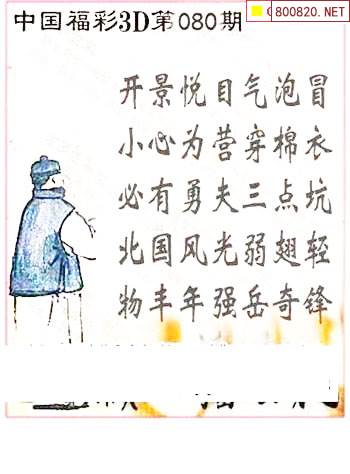 800820.NET
中国福彩3D第080期
开景悦目气泡冒
小心为营穿棉衣
必有勇夫三点坑
北国风光弱翅轻
物丰年强岳奇锋